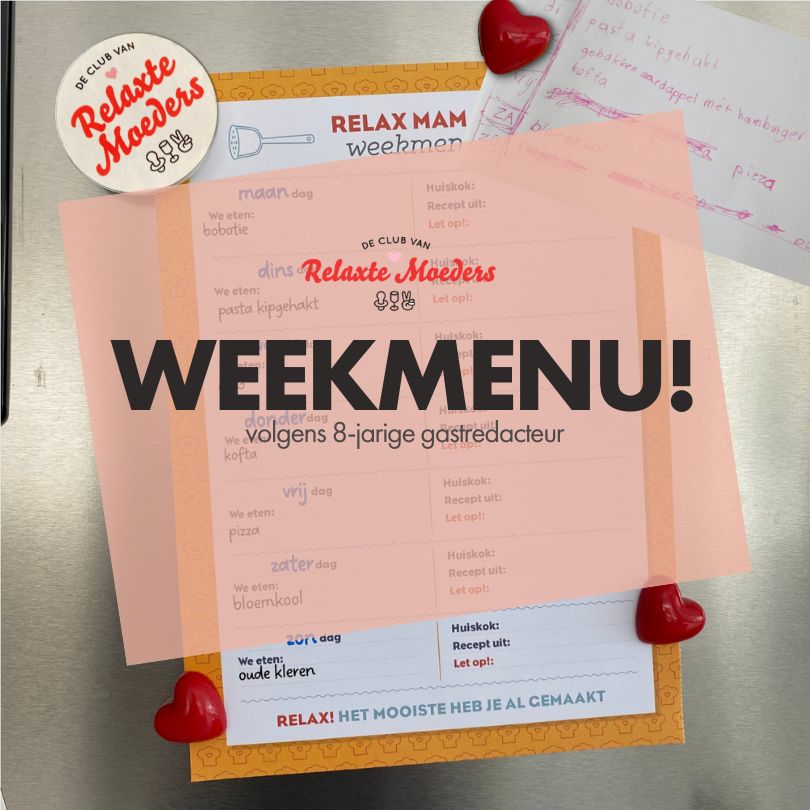 DE CLUB VAN
Relaxte
Moeders
RELAX MAM
weekmen
maandag
We eten:
bobotie
Huiskok:
Recept uit:
Let op!:
dins
We eten:
pasta kipgehakt
Huiskok:
Let op!:
DE CLUB VAN
Relaxte Moeders
Huiskok:
WEEKMENU!
volgens 8-jarige gastredacteur
donderdag
kofta
Let op!:
vrijdag
We eten:
pizza
Huiskok:
Recept uit:
Let op!:
zaterdag
We eten:
bloemkool
Huiskok:
Recept uit:
Let op!:
zondag
We eten:
oude kleren
Huiskok:
Recept uit:
Let op!:
RELAX! HET MOOISTE HEB JE AL GEMAAKT
di
bobotie
pasta kipgehakt
gebakken aardappel met hamburger
kofta
vrij
ZA
pizza